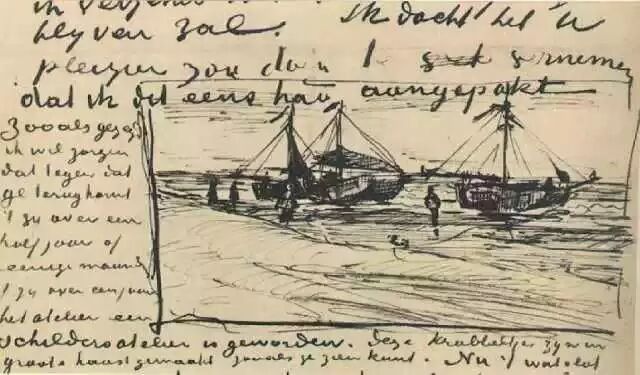 blyven zal. Ik dacht het U
plezier zou doen
dat ik dit eens had aangepakt
Zooals gezegd
ik wil zorgen
dat tegen dat
ge terugkomt
't zy over een
half jaar of
eenige maand
't zy over een jaar
het atelier een
schildersatelier is geworden. Deze krabbeltjes zyn in
groote haast gemaakt zooals ge zien kunt. Nu